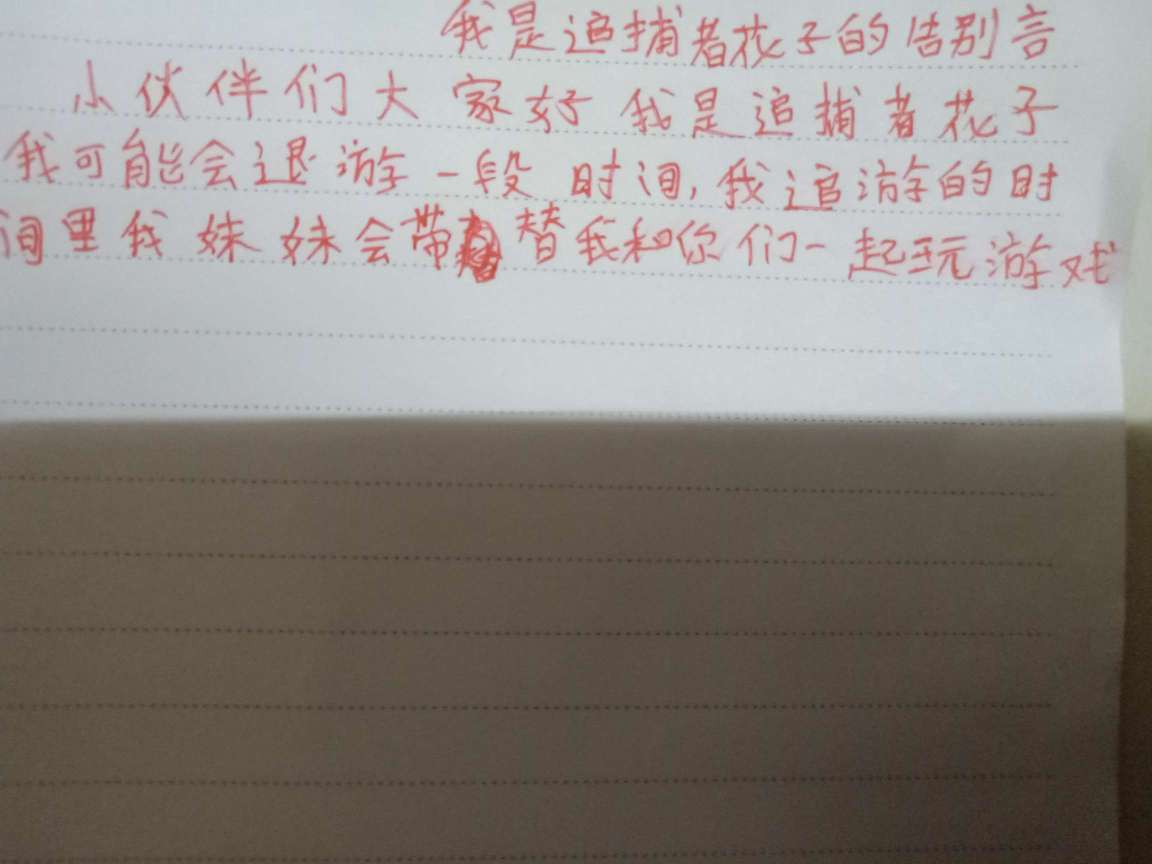 我是追捕者花子的告别言
小伙伴们大家好我是追捕者花子
我可能会退游一段时间,我追游的时
间里我妹妹会带替我和你们一起玩游戏